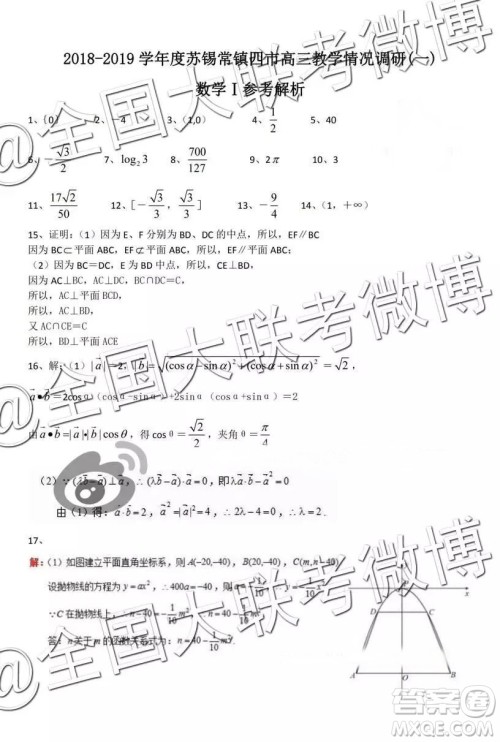 2018-2019 学年度苏锡常镇四市高三教学情况调研(一)
数学Ⅰ参考解析
1、{0} 2、-4 3、(1,0) 4、1/2 5、40
6、-√3/2 7、log₂3 8、700/127 9、2π 10、3
11、17√2/50 12、[-√3/3, √3/3] 13、-9/4 14、(1,+∞)
15、证明:(1)因为 E、F 分别为 BD、DC 的中点,所以,EF∥BC
因为 BC⊂平面 ABC,EF⊄平面 ABC,所以,EF∥平面 ABC
(2)因为 BC=DC,E 为 BD 中点,所以,CE⊥BD,
因为 AC⊥BC,AC⊥DC,BC∩DC=C
所以,AC⊥平面 BCD,
所以,AC⊥BD,
又 AC∩CE=C
所以,BD⊥平面 ACE
16、解:(1)|a|=2,|b|=√((cosα-sinα)²+(cosα+sinα)²)=√2,
a•b=2cosα(cosα-sinα)+2sinα(cosα+sinα)=2
由a•b=|a|•|b|cosθ,得 cosθ=√2/2,夹角θ=π/4
(2)∵(λb-a)⊥a,∴(λb-a)•a=0,即λb•a-a²=0
由(1)得:a•b=2,a²=4,∴2λ-4=0,∴λ=2.
17、
解:(1)如图建立平面直角坐标系,则A(-20,-40),B(20,-40),C(m,n-40)
设抛物线的方程为y=ax²,∴400a=-40,∴a=-1/10
∵C在抛物线上,∴n-40=-1/10m²,∴n=40-1/10m²
答:n关于m的函数关系式为:n=40-1/10m²
C
A
B
全国大联考微博
答案圈